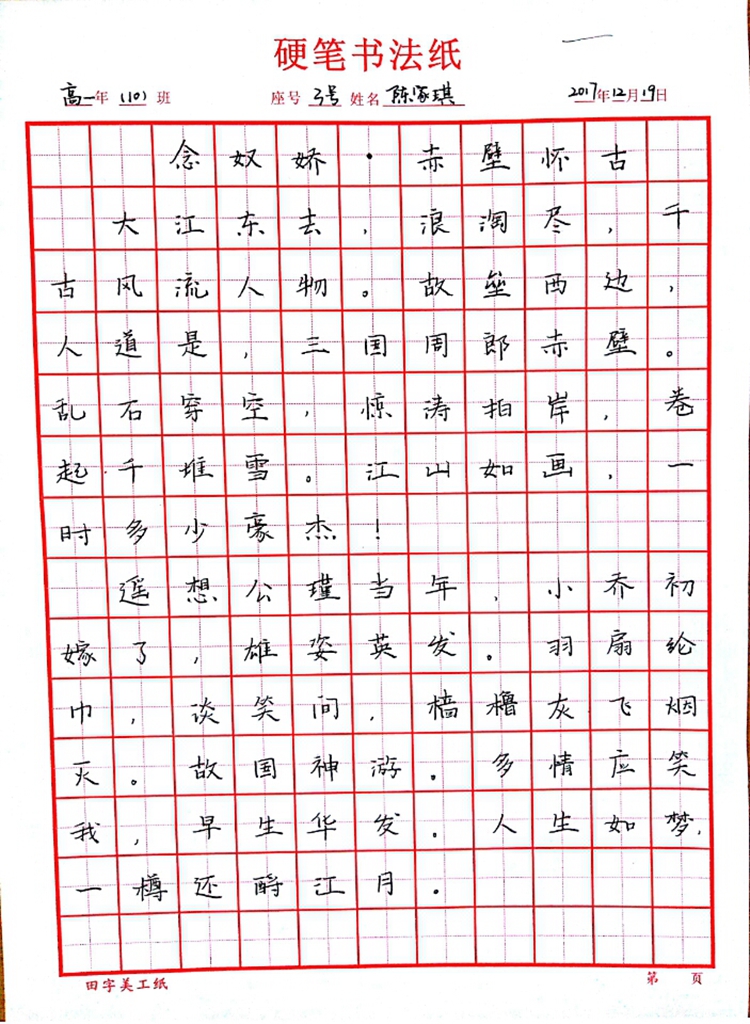 硬笔书法纸
高一年（10）班 座号 3号 姓名 陈家琪 2017年12月19日
念奴娇·赤壁怀古
大江东去，浪淘尽，千
古风流人物。故垒西边，
人道是，三国周郎赤壁。
乱石穿空，惊涛拍岸，卷
起千堆雪。江山如画，一
时多少豪杰！
遥想公瑾当年，小乔初
嫁了，雄姿英发。羽扇纶
巾，谈笑间，樯橹灰飞烟
灭。故国神游。多情应笑
我，早生华发。人生如梦，
一樽还酹江月。
田字美工纸 第 页